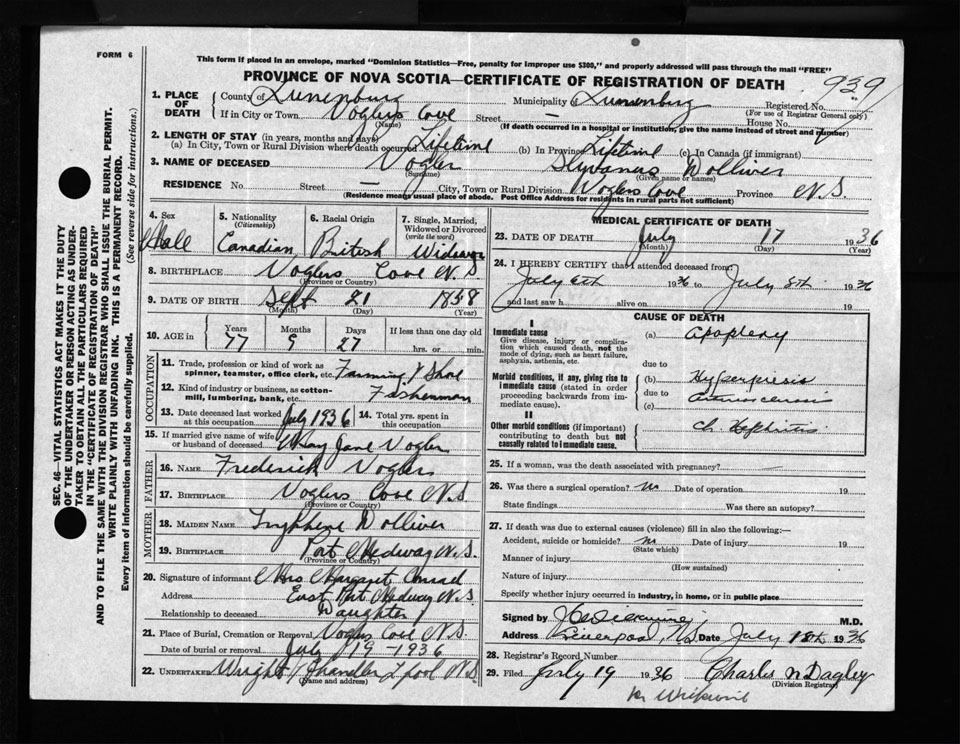 FORM 6
This form if placed in an envelope, marked "Dominion Statistics—Free, penalty for improper use $300," and properly addressed will pass through the mail "FREE"
PROVINCE OF NOVA SCOTIA—CERTIFICATE OF REGISTRATION OF DEATH
939
1. PLACE OF DEATH
County of Lunenburg Municipality of Lunenburg Registered No.
(For use of Registrar General only)
If in City or Town. Voglers Cove Street — House No.
(Name) (If death occurred in a hospital or institution, give the name instead of street and number)
2. LENGTH OF STAY (in years, months and days)
(a) In City, Town or Rural Division where death occurred Lifetime (b) In Province Lifetime (c) In Canada (if immigrant)
3. NAME OF DECEASED Vogler Slyvanus Dolliver
(Surname) (Given name or names)
RESIDENCE No. Street — City, Town or Rural Division Voglers Cove Province N.S.
(Residence means usual place of abode. Post Office Address for residents in rural parts not sufficient)
4. Sex Male
5. Nationality (Citizenship) Canadian
6. Racial Origin British
7. Single, Married, Widowed or Divorced (write the word) Widower
8. BIRTHPLACE Voglers Cove N.S
(Province or Country)
9. DATE OF BIRTH Sept 21 1858
(Month) (Day) (Year)
10. AGE in Years 77 Months 9 Days 27 If less than one day old hrs. or min.
OCCUPATION
11. Trade, profession or kind of work as spinner, teamster, office clerk, etc. Farming & Shore
12. Kind of industry or business, as cotton-mill, lumbering, bank, etc. Fisherman
13. Date deceased last worked at this occupation July 1936
14. Total yrs. spent in this occupation
15. If married give name of wife or husband of deceased May Jane Vogler
FATHER
16. NAME Frederick Voglers
17. BIRTHPLACE Voglers Cove N.S.
(Province or Country)
MOTHER
18. MAIDEN NAME Tryphene Dolliver
19. BIRTHPLACE Port Medway N.S.
(Province or Country)
20. Signature of informant Mrs Margaret Conrad
Address East Port Medway N.S
Relationship to deceased Daughter
21. Place of Burial, Cremation or Removal Voglers Cove N.S.
Date of burial or removal July 19 - 1936
22. UNDERTAKER Wright / Chandler L'pool N.S
(Name and address)
MEDICAL CERTIFICATE OF DEATH
23. DATE OF DEATH July 17 1936
(Month) (Day) (Year)
24. I HEREBY CERTIFY that I attended deceased from:
July 6th 1936 to July 8th 1936
and last saw h alive on 19
CAUSE OF DEATH
I
Immediate cause
Give disease, injury or complication which caused death, not the mode of dying, such as heart failure, asphyxia, asthenia, etc.
(a) Apoplexy
due to
Morbid conditions, if any, giving rise to immediate cause (stated in order proceeding backwards from immediate cause).
(b) Hyperpiesis
due to
(c) Arteriosclerosis
II
Other morbid conditions (if important) contributing to death but not causally related to immediate cause.
Ch. Nephritis
25. If a woman, was the death associated with pregnancy? —
26. Was there a surgical operation? no Date of operation 19
State findings Was there an autopsy?
27. If death was due to external causes (violence) fill in also the following:—
Accident, suicide or homicide? no Date of injury 19
(State which)
Manner of injury
(How sustained)
Nature of injury
Specify whether injury occurred in industry, in home, or in public place
Signed by M.D.
Address Liverpool, N.S. Date July 18th 1936
28. Registrar's Record Number
29. Filed July 19 1936 Charles N Dagley
(Division Registrar)
SEC. 46—VITAL STATISTICS ACT MAKES IT THE DUTY
OF THE UNDERTAKER OR PERSON ACTING AS UNDER-
TAKER TO OBTAIN ALL THE PARTICULARS REQUIRED
IN THE "CERTIFICATE OF REGISTRATION OF DEATH"
AND TO FILE THE SAME WITH THE DIVISION REGISTRAR WHO SHALL ISSUE THE BURIAL PERMIT.
WRITE PLAINLY WITH UNFADING INK. THIS IS A PERMANENT RECORD.
Every item of information should be carefully supplied. (See reverse side for instructions.)